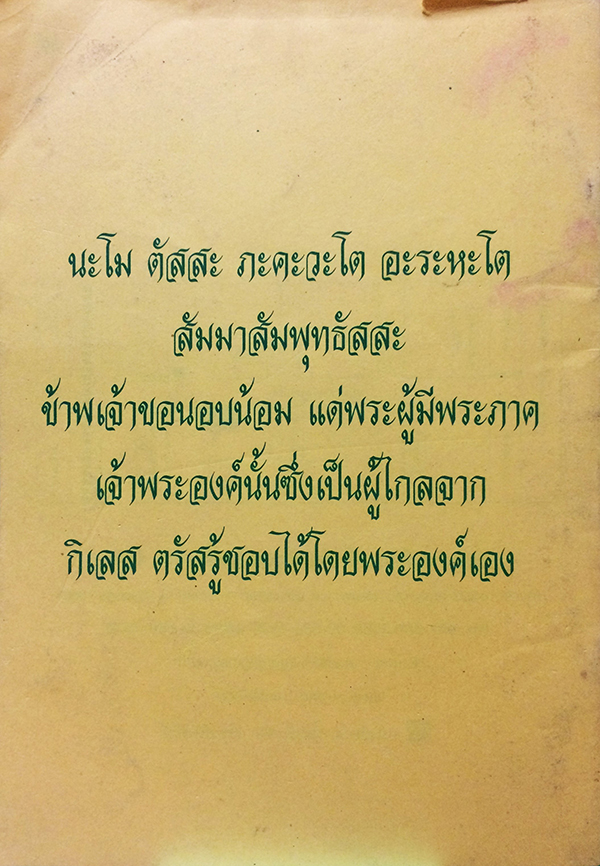 นะโม ตัสสะ ภะคะวะโต อะระหะโต
สัมมาสัมพุทธัสสะ
ข้าพเจ้าขอนอบน้อม แด่พระผู้มีพระภาค
เจ้าพระองค์นั้นซึ่งเป็นผู้ไกลจาก
กิเลส ตรัสรู้ชอบได้โดยพระองค์เอง